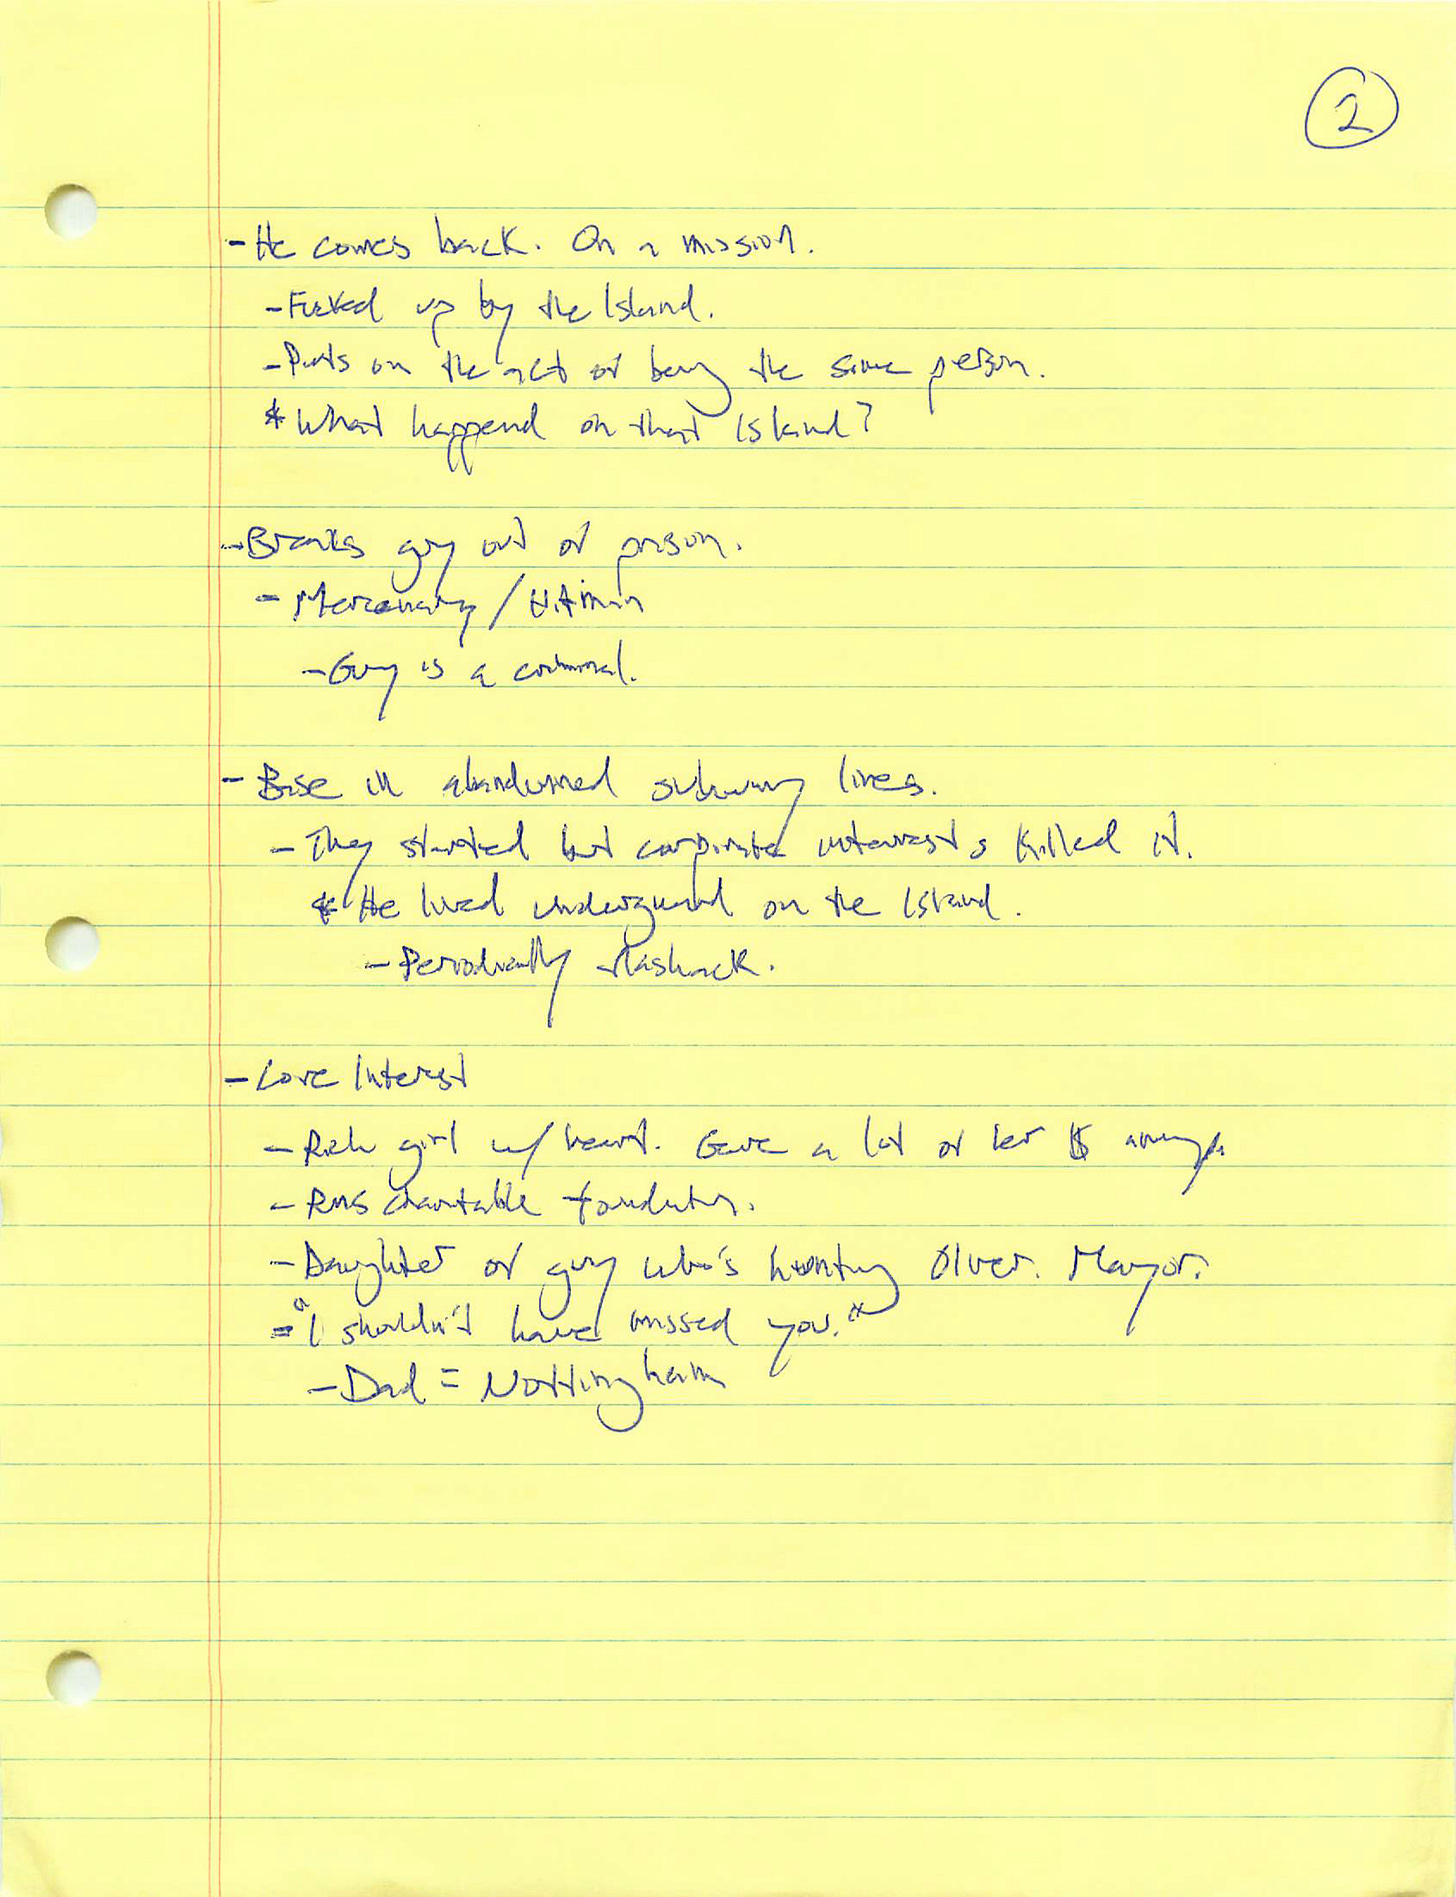 2
- He comes back. On a mission.
- Fucked up by the Island.
- Puts on the act of being the same person.
* What happend on that Island?
- Breaks guy out of prison.
- Mercenary / Hitman
- Guy is a criminal.
- Base in abandonned subway lines.
- They started but corporate interests killed it.
* He lived underground on the Island.
- Periodically flashback.
- Love Interest
- Rich girl w/ heart. Gave a lot of her $ away.
- Runs charitable foundation.
- Daughter of guy who's hunting Oliver. Mayor.
- "I shouldn't have missed you."
- Dad = Nottingham